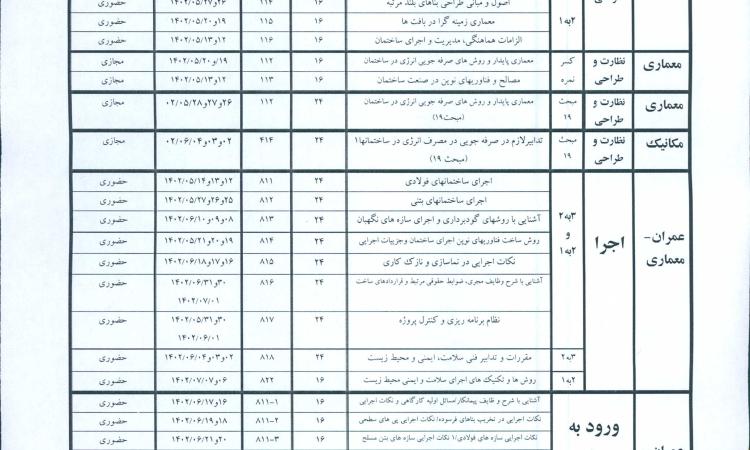 اصول و مبانی طراحی بناهای بلند مرتبه ۱۶ ۱۱۴ ۱۴۰۲/۰۵/۲۷و۲۶ حضوری
۲به۱ معماری زمینه گرا در بافت ها ۱۶ ۱۱۵ ۱۴۰۲/۰۵/۲۰و۱۹ حضوری
الزامات هماهنگی، مدیریت و اجرای ساختمان ۱۶ ۱۱۶ ۱۴۰۲/۰۵/۱۳و۱۲ حضوری
معماری نظارت و طراحی کسر نمره معماری پایدار و روش های صرفه جویی انرژی در ساختمان ۱۶ ۱۱۲ ۱۴۰۲/۰۵/۲۰و۱۹ مجازی
مصالح و فناوریهای نوین در صنعت ساختمان ۱۶ ۱۱۳ ۱۴۰۲/۰۵/۱۳و۱۲ مجازی
معماری نظارت و طراحی مبحث ۱۹ معماری پایدار و روش های صرفه جویی انرژی در ساختمان (مبحث۱۹) ۲۴ ۱۱۲ ۰۲/۰۵/۲۸و۲۷و۲۶ مجازی
مکانیک نظارت و طراحی مبحث ۱۹ تدابیرلازم در صرفه جویی در مصرف انرژی در ساختمانها۱ (مبحث ۱۹) ۲۴ ۴۱۴ ۰۲/۰۶/۰۴و۰۳و۰۲ مجازی
عمران-معماری اجرا ۳به۲ و ۲به۱ اجرای ساختمانهای فولادی ۲۴ ۸۱۱ ۱۴۰۲/۰۵/۱۴و۱۳و۱۲ حضوری
اجرای ساختمانهای بتنی ۲۴ ۸۱۲ ۱۴۰۲/۰۵/۲۷و۲۶و۲۵ حضوری
آشنایی با روشهای گودبرداری و اجرای سازه های نگهبان ۲۴ ۸۱۳ ۱۴۰۲/۰۶/۱۰و۰۹و۰۸ حضوری
روش ساخت فناوریهای نوین اجرای ساختمان وجزییات اجرایی ۲۴ ۸۱۴ ۱۴۰۲/۰۵/۲۱و۲۰و۱۹ حضوری
نکات اجرایی در نماسازی و نازک کاری ۲۴ ۸۱۵ ۱۴۰۲/۰۶/۱۸و۱۷و۱۶ حضوری
آشنایی با شرح وظایف مجری، ضوابط حقوقی مرتبط و قراردادهای ساخت ۲۴ ۸۱۶ ۱۴۰۲/۰۶/۳۱و۳۰ حضوری
۱۴۰۲/۰۷/۰۱
نظام برنامه ریزی و کنترل پروژه ۲۴ ۸۱۷ ۱۴۰۲/۰۵/۳۱و۳۰ حضوری
۱۴۰۲/۰۶/۰۱
۳به۲ مقررات و تدابیر فنی سلامت، ایمنی و محیط زیست ۲۴ ۸۱۸ ۱۴۰۲/۰۶/۰۴و۰۳و۰۲ حضوری
۲به۱ روش ها و تکنیک های اجرای سلامت و ایمنی محیط زیست ۱۶ ۸۲۲ ۱۴۰۲/۰۷/۰۷و۰۶ حضوری
ورود به آشنایی با شرح و ظایف پیمانکار/مسائل اولیه کارگاهی و نکات اجرایی ۱۶ ۸۱۱-۱ ۱۴۰۲/۰۶/۱۷و۱۶ حضوری
نکات اجرایی در تخریب بناهای فرسوده/نکات اجرایی پی های سطحی ۱۶ ۸۱۱-۲ ۱۴۰۲/۰۶/۱۹و۱۸ حضوری
عمران نکات اجرایی سازه های فولادی/۱ نکات اجرایی سازه های بتن مسلح ۱۶ ۸۱۱-۳ ۱۴۰۲/۰۶/۲۱و۲۰ حضوری